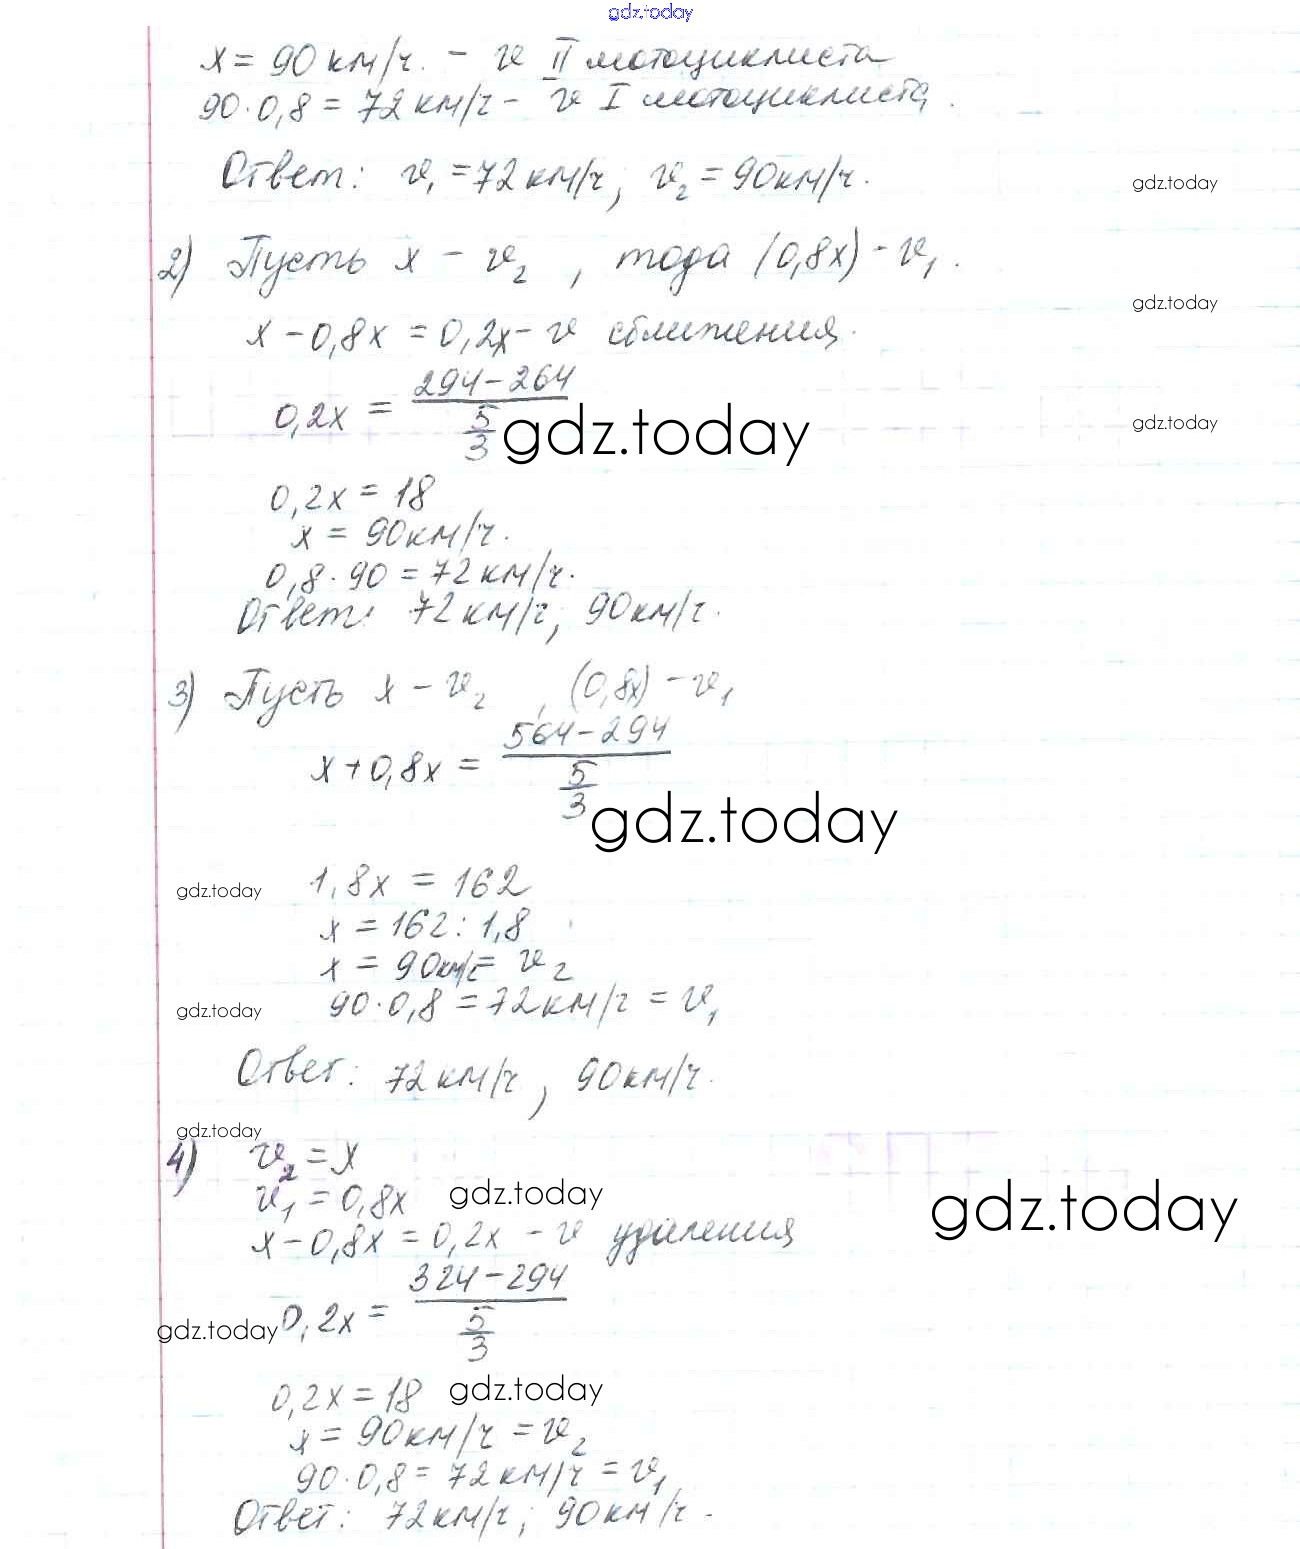 gdz.today
x = 90 км/ч. - v II мотоциклиста
90·0,8 = 72 км/ч - v I мотоциклиста.
Ответ: v₁ = 72 км/ч, v₂ = 90 км/ч.
gdz.today
2) Пусть x - v₂, тода (0,8x) - v₁.
gdz.today
x - 0,8x = 0,2x - v сближения.
0,2x = (294 - 264)/(5/3)
gdz.today
gdz.today
0,2x = 18
x = 90 км/ч.
0,8·90 = 72 км/ч.
Ответ: 72 км/ч, 90 км/ч.
3) Пусть x - v₂, (0,8x) - v₁
x + 0,8x = (564 - 294)/(5/3)
gdz.today
gdz.today
1,8x = 162
x = 162 : 1,8
x = 90 км/ч = v₂
gdz.today
90·0,8 = 72 км/ч = v₁
Ответ: 72 км/ч, 90 км/ч.
gdz.today
4) v₂ = x
v₁ = 0,8x
gdz.today
gdz.today
x - 0,8x = 0,2x - v удаления
0,2x = (324 - 294)/(5/3)
gdz.today
0,2x = 18
gdz.today
x = 90 км/ч = v₂
90·0,8 = 72 км/ч = v₁
Ответ: 72 км/ч; 90 км/ч.